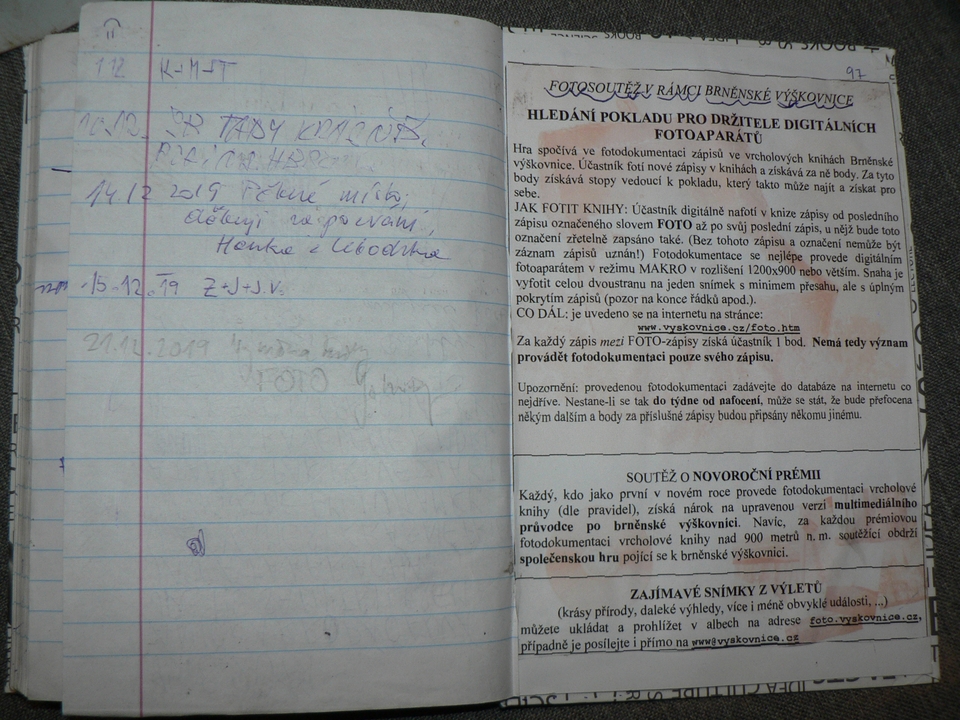 K+M+T
10.12.
TADY KRÁSNĚ,
14.12 2019 Pěkné místo,
děkuji za pozvání,
Hanka z
15.12.19 Z+J+J.V.
21.12.2019
97
FOTOSOUTĚŽ V RÁMCI BRNĚNSKÉ VÝŠKOVNICE
HLEDÁNÍ POKLADU PRO DRŽITELE DIGITÁLNÍCH
FOTOAPARÁTŮ
Hra spočívá ve fotodokumentaci zápisů ve vrcholových knihách Brněnské
výškovnice. Účastník fotí nové zápisy v knihách a získává za ně body. Za tyto
body získává stopy vedoucí k pokladu, který takto může najít a získat pro
sebe.
JAK FOTIT KNIHY: Účastník digitálně nafotí v knize zápisy od posledního
zápisu označeného slovem FOTO až po svůj poslední zápis, u nějž bude toto
označení zřetelně zapsáno také. (Bez tohoto zápisu a označení nemůže být
záznam zápisů uznán!) Fotodokumentace se nejlépe provede digitálním
fotoaparátem v režimu MAKRO v rozlišení 1200x900 nebo větším. Snaha je
vyfotit celou dvoustranu na jeden snímek s minimem přesahu, ale s úplným
pokrytím zápisů (pozor na konce řádků apod.).
CO DÁL: je uvedeno se na internetu na stránce:
www.vyskovnice.cz/foto.htm
Za každý zápis mezi FOTO-zápisy získá účastník 1 bod. Nemá tedy význam
provádět fotodokumentaci pouze svého zápisu.
Upozornění: provedenou fotodokumentaci zadávejte do databáze na internetu co
nejdříve. Nestane-li se tak do týdne od nafocení, může se stát, že bude přefocena
někým dalším a body za příslušné zápisy budou připsány někomu jinému.
SOUTĚŽ O NOVOROČNÍ PRÉMII
Každý, kdo jako první v novém roce provede fotodokumentaci vrcholové
knihy (dle pravidel), získá nárok na upravenou verzi multimediálního
průvodce po brněnské výškovnici. Navíc, za každou prémiovou
fotodokumentaci vrcholové knihy nad 900 metrů n. m. soutěžící obdrží
společenskou hru pojící se k brněnské výškovnici.
ZAJÍMAVÉ SNÍMKY Z VÝLETŮ
(krásy přírody, daleké výhledy, více i méně obvyklé události, ...)
můžete ukládat a prohlížet v albech na adrese foto.vyskovnice.cz,
případně je posílejte i přímo na www@vyskovnice.cz